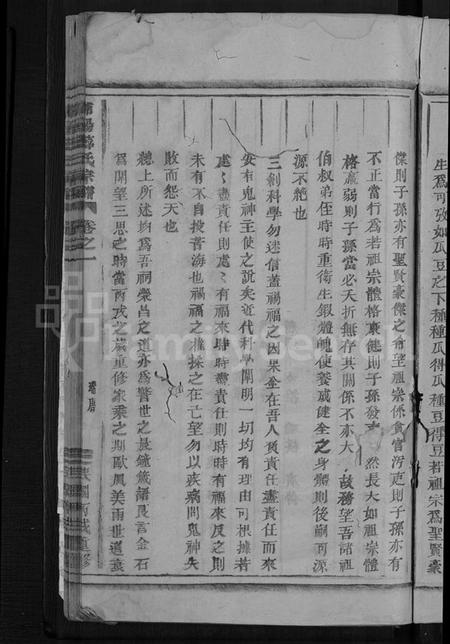 生為可攷如瓜豆之下種種瓜得瓜種豆得豆若祖宗為聖賢豪
傑則子孫亦有聖賢豪傑之希望祖宗係貪官污吏則子孫亦有
不正當行為若祖宗體格衰健則子孫發 然長大如祖宗體
格羸弱則子孫當必夭折無存其關係不亦大 故務望吾諸祖
伯叔弟侄時時重衛生鍛體魄使養成健全之身體則後嗣可源
源不絕也
三創科學勿迷信蓋禍福之因果全在吾人負責任盡責任而來
安有鬼神主使之說矣近代科學開明一切均有理由可根據若
處處盡責任則處處有福來時時盡責任則時時有福來反之則
未有不自投苦海也禍福之權操之在己望勿以疾病問鬼神失
敗而怨天也
總上所述均為吾祠榮昌之道亦為警世之晨鐘箴諸良言金石
為開望三思之時當丙戌之歲重修家乘之期歐風美雨世道衰
氏宗譜
卷之一
民國丙戌重修